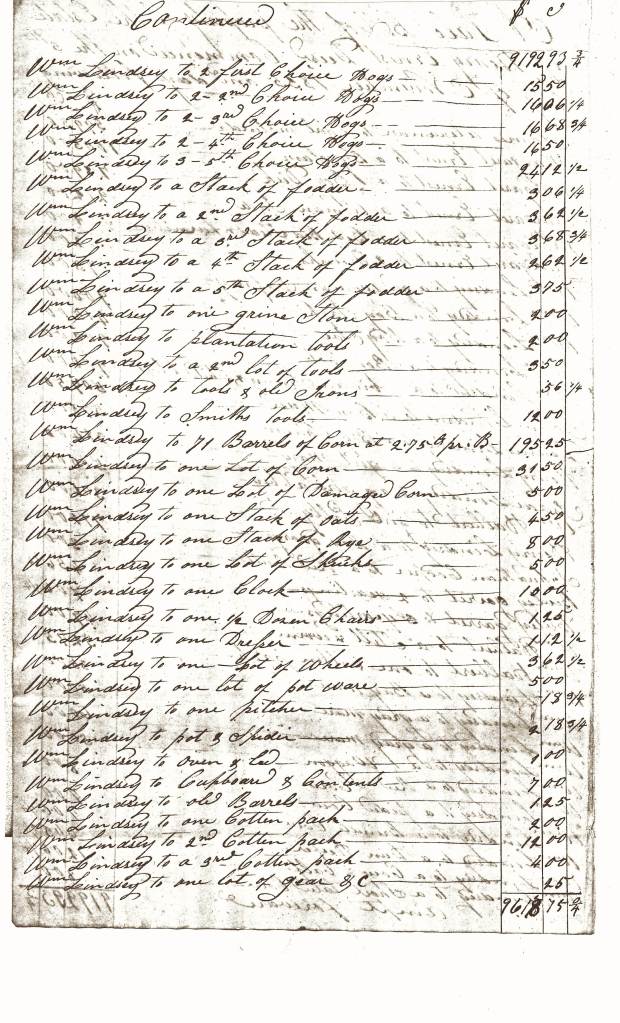 Continued $ C
9192 93 3/4
Wm Lindsey to 2 first Choice Hogs 15 50
Wm Lindsey to 2 - 2nd Choice Hogs 16 06 1/4
Wm Lindsey to 2 - 3rd Choice Hogs 16 68 3/4
Wm Lindsey to 2 - 4th Choice Hogs 16 50
Wm Lindsey to 3 - 5th Choice Hogs 24 12 1/2
Wm Lindsey to a Stack of fodder 3 06 1/4
Wm Lindsey to a 2nd Stack of fodder 3 62 1/2
Wm Lindsey to a 3rd Stack of fodder 3 68 3/4
Wm Lindsey to a 4th Stack of fodder 2 62 1/2
Wm Lindsey to a 5th Stack of fodder 3 75
Wm Lindsey to one grine Stone 2 00
Wm Lindsey to plantation tools 2 00
Wm Lindsey to a 2nd lot of tools 3 50
Wm Lindsey to tools & old Irons 56 1/4
Wm Lindsey to Smiths tools 12 00
Wm Lindsey to 71 Barrels of Corn at 2.75 pr. B 195 25
Wm Lindsey to one Lot of Corn 31 50
Wm Lindsey to one Lot of Damaged Corn 5 00
Wm Lindsey to one Stack of Oats 4 50
Wm Lindsey to one Stack of Rye 8 00
Wm Lindsey to one Lot of 5 00
Wm Lindsey to one Clock 10 00
Wm Lindsey to one 1/2 Dozen Chairs 1 25
Wm Lindsey to one Dresser 1 12 1/2
Wm Lindsey to one Lot of Wheels 3 62 1/2
Wm Lindsey to one lot of pot ware 5 00
Wm Lindsey to one pitcher 18 3/4
Wm Lindsey to pot & Spider 2 18 3/4
Wm Lindsey to oven & led 1 00
Wm Lindsey to Cupboard & Contents 7 00
Wm Lindsey to old Barrels 1 25
Wm Lindsey to one Cotten pach 2 00
Wm Lindsey to 2nd Cotten pach 12 00
Wm Lindsey to a 3rd Cotten pach 4 00
Wm Lindsey to one lot of gear &C 25
75